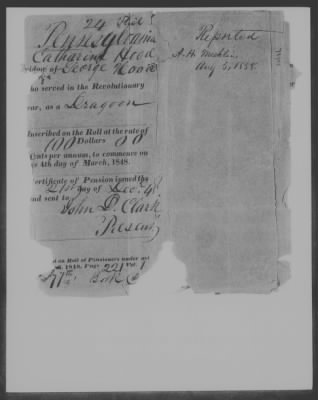 24
Pennsylvania
Catharine Hood
widow of George Hood
who served in the Revolutionary
war, as a Dragoon
Inscribed on the Roll at the rate of
100 Dollars 00
Cents per annum, to commence on
the 4th day of March, 1848.
Certificate of Pension issued the
day of Dec. 48
and sent to
John D. Clark
Present
on Roll of Pensioners under act
1848, Page 221 Vol. 1
Reported
Aug 5, 1858.